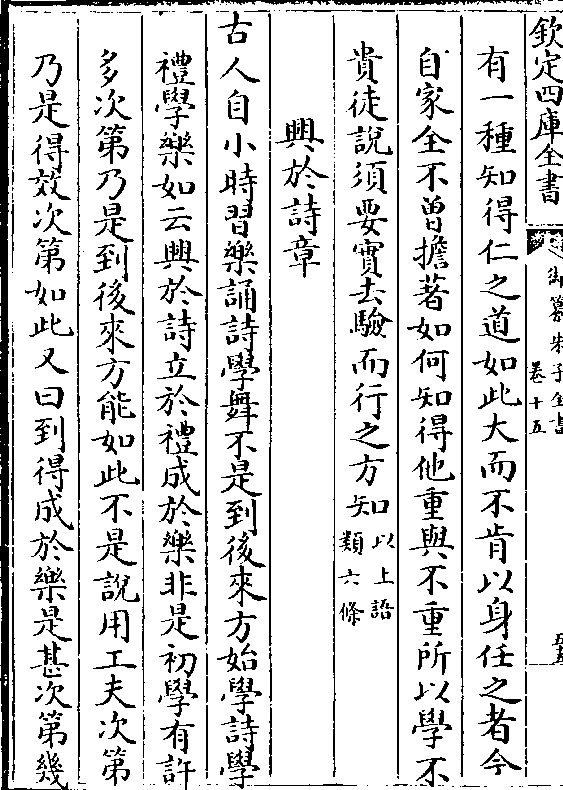 欽定四庫全書
御纂朱子全書
卷十五
有一種知得仁之道如此大而不肯以身任之者今
自家全不曽擔著如何知得他重與不重所以學不
貴徒說須要實去驗而行之方知以上語
類六條
興於詩章
古人自小時習樂誦詩學舞不是到後來方始學詩學
禮學樂如云興於詩立於禮成於樂非是初學有許
多次第乃是到後來方能如此不是說用工夫次第
乃是得效次第如此又曰到得成於樂是甚次第幾